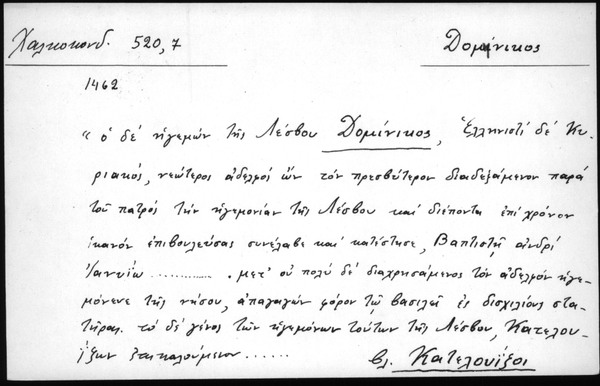 Χαλκοκονδ. 520,7 Δομίνικος
1462
" ὁ δέ ἡγεμών τῆς Λέσβου Δομίνικος, Ἑλληνιστί δέ Κυ-
ριακός, νεώτερος ἀδελφός ὤν τόν πρεσβύτερον διαδεξάμενον παρά
τοῦ πατρός τήν ἡγεμονίαν τῆς Λέσβου καί διέποντα ἐπί χρόνον
ἱκανόν ἐπιβουλεύσας συνέλαβε καί κατέστησε, Βαπτιστῇ ἀνδρί
Ἰανυΐῳ ............. . μετ' οὐ πολύ δέ διαχρησάμενος τόν ἀδελφόν ἡγε-
μόνευε τῆς νήσου, ἀπαγαγών φόρον τῷ βασιλεῖ ἐς δισχιλίους στα-
τῆρας. τό δέ γένος τῶν ἡγεμόνων τούτων τῆς Λέσβου, Κατελου-
ΐξων ἐπικαλούμενον ......
βλ. Κατελουΐξοι